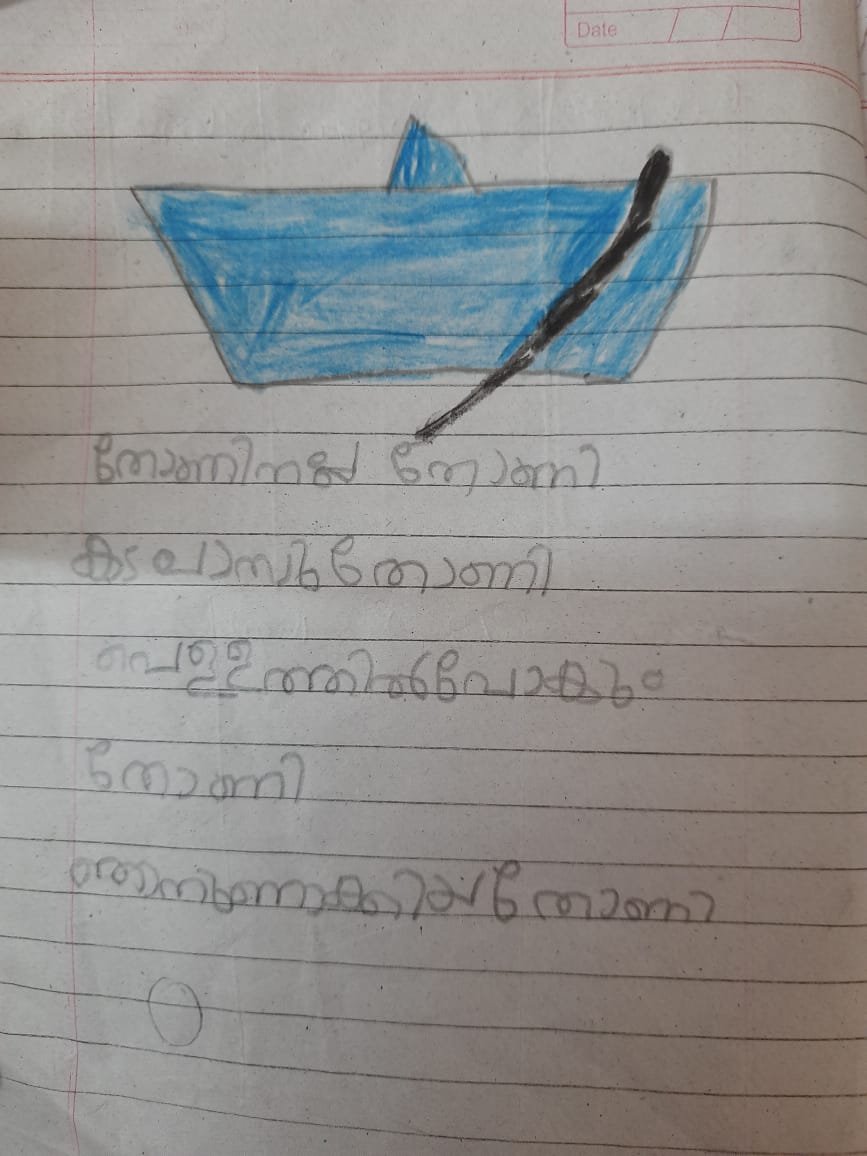 Date
തോണിനല്ല തോണി
കടലാസുതോണി
വെള്ളത്തിൽപോകും
തോണി
ഞാനുണ്ടാക്കിയതോണി